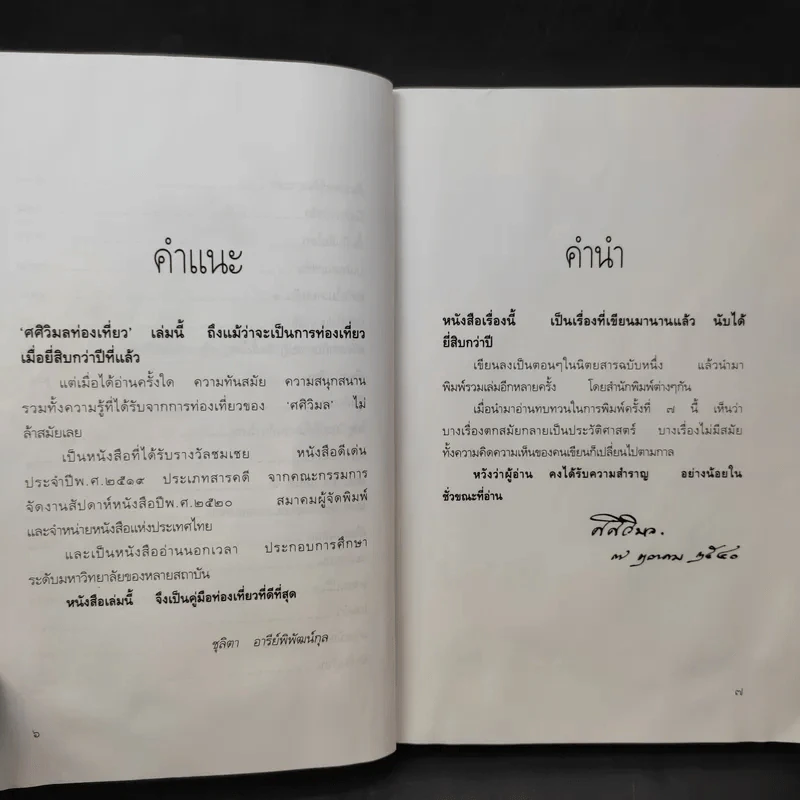 คำแนะ
‘ศศิวิมลท่องเที่ยว’ เล่มนี้ ถึงแม้ว่าจะเป็นการท่องเที่ยว
เมื่อยี่สิบกว่าปีที่แล้ว
แต่เมื่อได้อ่านครั้งใด ความทันสมัย ความสนุกสนาน
รวมทั้งความรู้ที่ได้รับจากการท่องเที่ยวของ ‘ศศิวิมล’ ไม่
ล้าสมัยเลย
เป็นหนังสือที่ได้รับรางวัลชมเชย หนังสือดีเด่น
ประจำปีพ.ศ.๒๕๑๙ ประเภทสารคดี จากคณะกรรมการ
จัดงานสัปดาห์หนังสือปีพ.ศ.๒๕๒๐ สมาคมผู้จัดพิมพ์
และจำหน่ายหนังสือแห่งประเทศไทย
และเป็นหนังสืออ่านนอกเวลา ประกอบการศึกษา
ระดับมหาวิทยาลัยของหลายสถาบัน
หนังสือเล่มนี้ จึงเป็นคู่มือท่องเที่ยวที่ดีที่สุด
ชูลิตา อารีย์พิพัฒน์กุล
๖
คำนำ
หนังสือเรื่องนี้ เป็นเรื่องที่เขียนมานานแล้ว นับได้
ยี่สิบกว่าปี
เขียนลงเป็นตอนๆในนิตยสารฉบับหนึ่ง แล้วนำมา
พิมพ์รวมเล่มอีกหลายครั้ง โดยสำนักพิมพ์ต่างๆกัน
เมื่อนำมาอ่านทบทวนในการพิมพ์ครั้งที่ ๗ นี้ เห็นว่า
บางเรื่องตกสมัยกลายเป็นประวัติศาสตร์ บางเรื่องไม่มีสมัย
ทั้งความคิดความเห็นของคนเขียนก็เปลี่ยนไปตามกาล
หวังว่าผู้อ่าน คงได้รับความสำราญ อย่างน้อยใน
ชั่วขณะที่อ่าน
ศศิวิมล.
๗ ตุลาคม ๒๕๔๐
๗